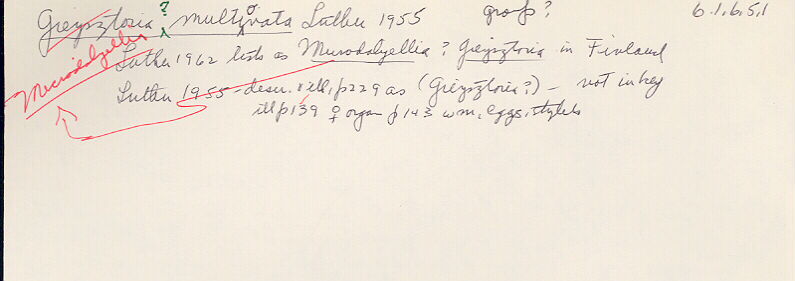 Gieysztoria ? multiovata Luther 1955 group? 6.1,6.5,1
Microdalyellia
Luther 1962 lists as Microdalyellia? Gieysztoria in Finland
Luther 1955 - descr. & ill, p229 as (Gieysztoria?) - not in key
ill p139 ♀ organ p143 wm, eggs, stylets